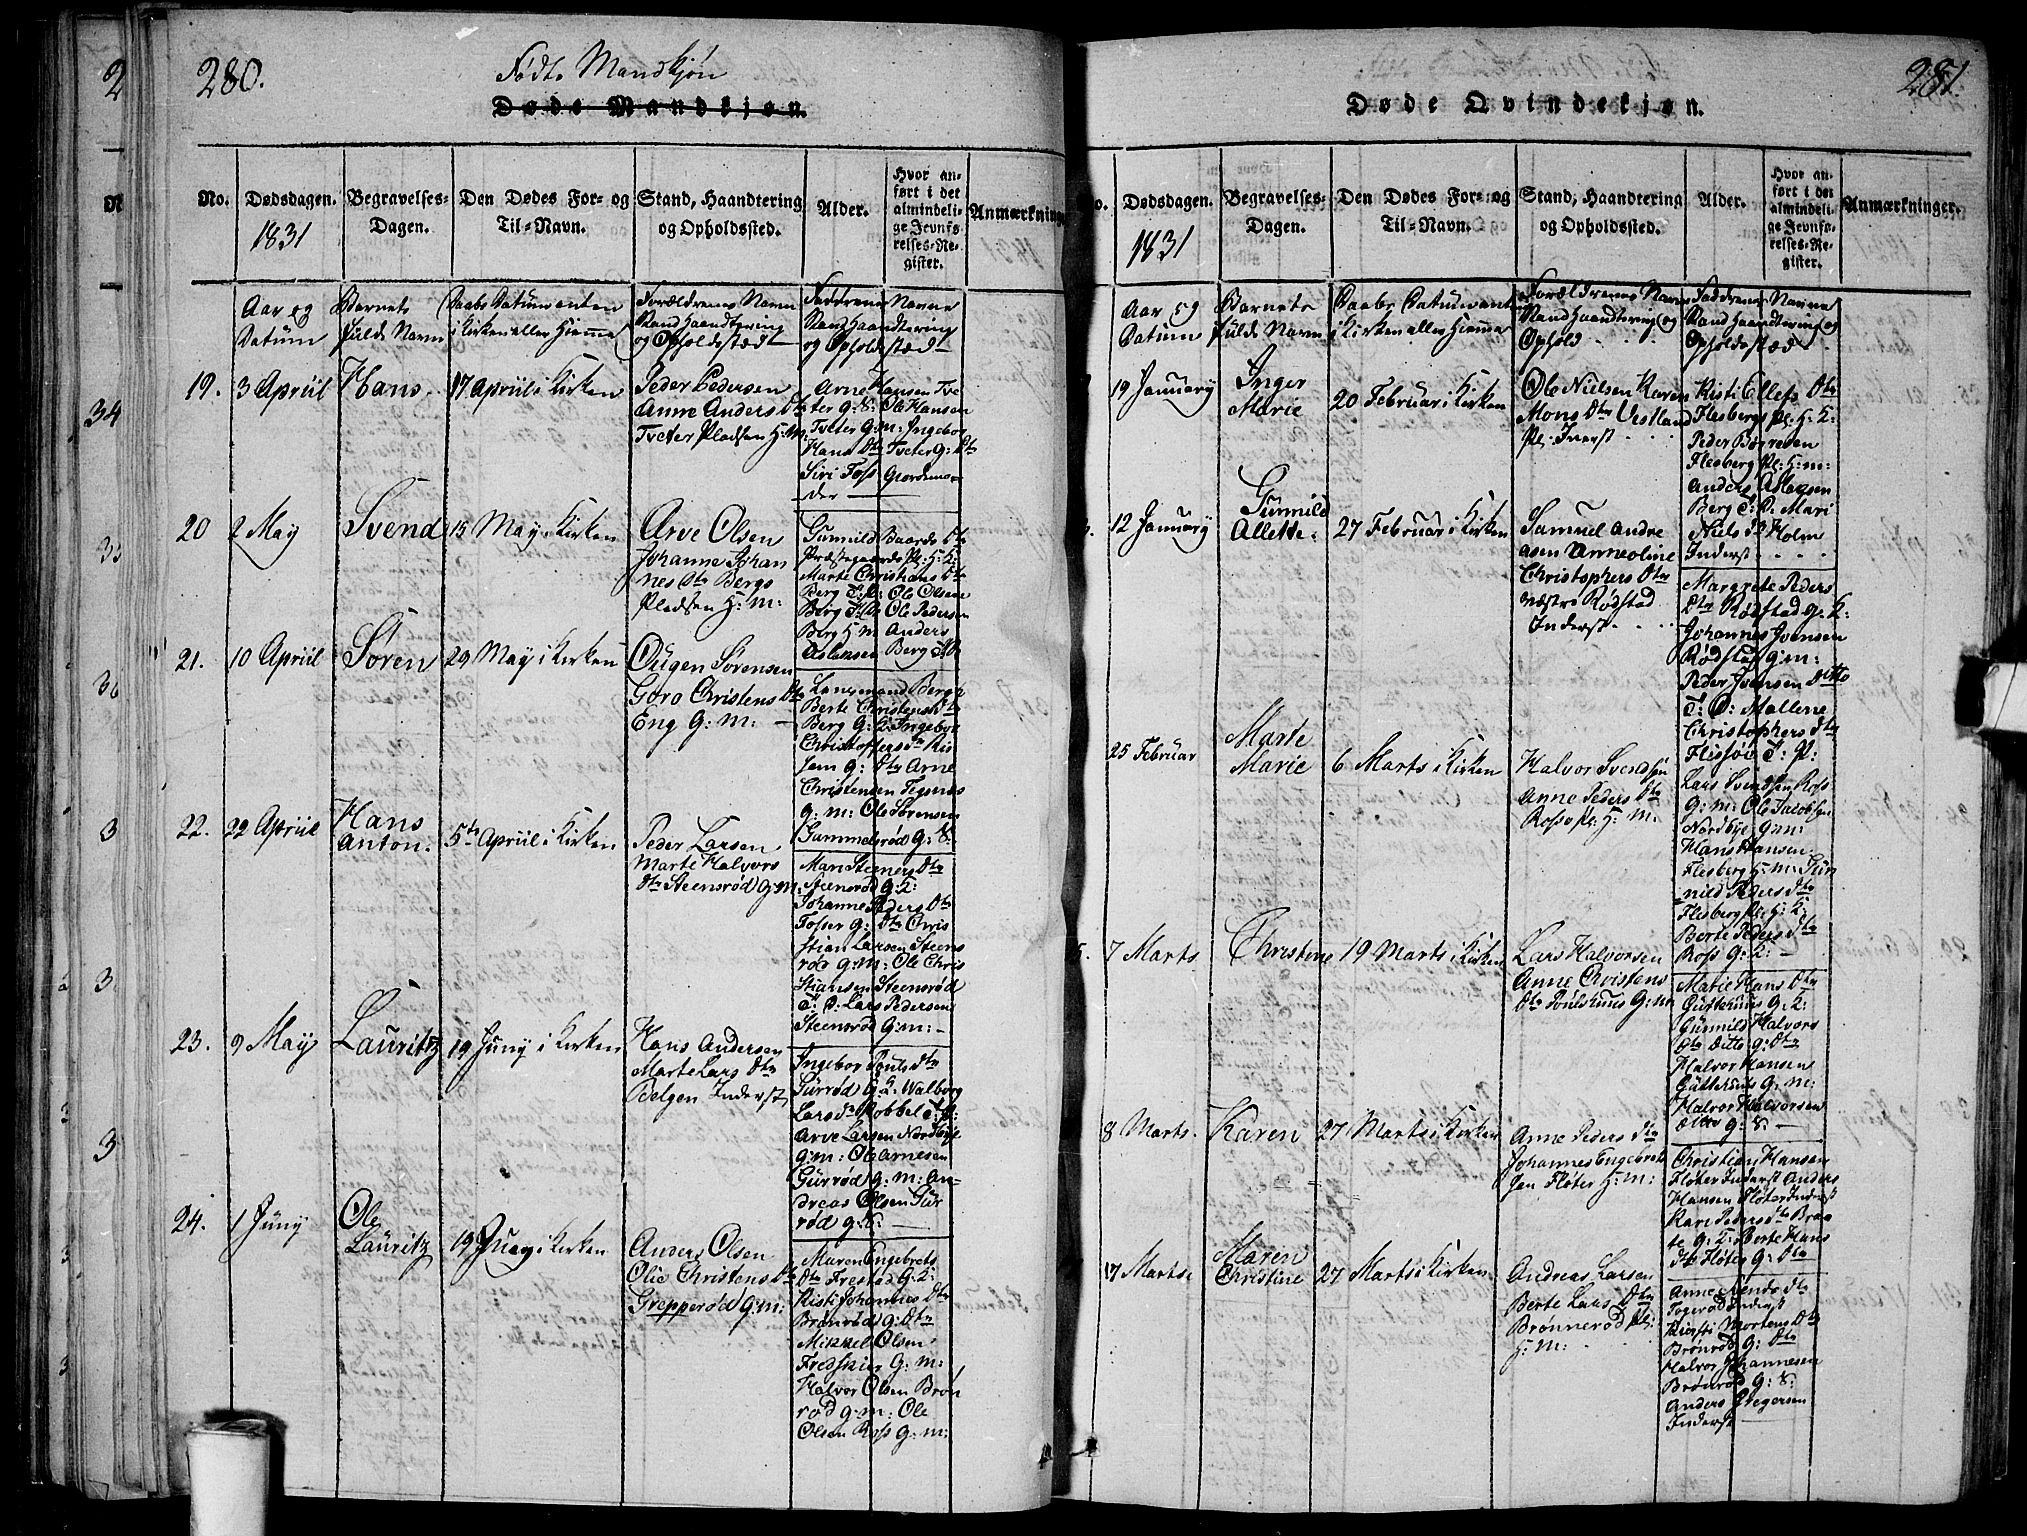 280.
Födte Mandkjön
Døde Mandkjøn.
No.
Dødsdagen.
1831
Begravelses-
Dagen.
Den Dødes For- og
Til-Navn.
Stand, Haandtering
og Opholdssted.
Alder.
Hvor an-
ført i det
almindeli-
ge Jevnfø-
relses-Re-
gister.
Anmærkninger
Aar og
Datum
Barnets
fulde Navn
Daabs Datum enten
i Kirken eller Hiemme
Forældrenes Navn
Stand Haandtering
og Opholdsstæd
Faddrenes Navne
Stand Haandtering
og Opholdsstæd
19. 3 Apriil
Hans
17 Apriil i Kirken
Peder Pedersen
Anne Anders Dtr
Tveter Pladsen H:M:
Arne Hansen Tve
ter G:S: Ole Hansen
Tveter G:M: Ingebor
Hans Dtr Tveter G: Dtr
Siri Foss Giordemo-
der
20 2 May
Svend
15 May i Kirken
Arve Olsen
Johanne Johan
nes Dtr Bergs
Pladsen H: M:
Gunnild Baards Dtr
Præstegaards Pl: H: K:
Marte Christians Dtr
Berg T:P: Ole Olsen
Berg H:M Ole Pedersen
Berg H M Anders
Aslaksen Berg
21. 10 Apriil
Søren
29 May i Kirken
Ougen Sørensen
Goro Christens Dtr
Eng G: M:
Berthe Christens Dtr
Berg G: K: Ingebor
Christoffers Dtr Ris
Jem G: Dtr Arne
Christensen Tegnæs
G: M: Ole Sørensen
Gammelsrød G: S:
22. 22 Apriil
Hans
Anton.
5te Apriil i Kirken
Peder Larsen
Marte Halvors
Dtr Steensrød G:M:
Mari Steeners Dtr
Steensrød G: K:
Johanne Peders Dtr
Fosser G: Dtr Chris
stian Larsen Steens
rød G:M: Ole Chris
Stiansen Steensrød
T: P: Lars Pedersen
Steensrød G:M:
23. 9 May
Lauritz
19 Juny i Kirken
Hans Andersen
Marte Lars Dtr
Belgen Inderst
Ingebor Pouls Dtr
Gurrød G: K: Walborg
Lars Dtr Kobbel T: P:
Arve Larsen Nordbye
G:M: Ole Arnesen
Gurrød G: M: An-
dreas Olsen Gur
rød G:S:
24. 1 Juny
Ole
Lauritz
19 Juny i Kirken
Anders Olsen
Olie Christens Dtr
Grepperød G:M:
Maren Engebrets
Dtr Frestad G: K:
Kisti Johannes Dtr
Brønrød G: Dtr
Mikkel Olsen
Fredskier G: M:
Halvor Olsen Brøn
rød G:M: Ole
Olsen Ross G:M:
281.
Døde Qvindekjøn.
Dødsdagen.
1831
Begravelses-
Dagen.
Den Dødes For- og
Til-Navn.
Stand, Haandtering
og Opholdssted.
Alder.
Hvor an-
ført i det
almindeli-
ge Jevnfø-
relses-Re-
gister.
Anmærkninger.
Aar og
Datum
Barnets
fulde Navn
Daabs Datum enten
i Kirken eller Hiemme
Forældrenes Navn
Stand Haandtering og
Ophold
Faddrenes Navne
Stand Haandtering og
Opholdsstæd
19 January
Inger
Marie
20 Februar i Kirken
Ole Nielsen Karen
Mons Dtr Vestland
Pl: Inderst
Kisti Ollefs Dtr
Flesberg Pl: H: K:
Peder Børresen
Flesberg Pl: H: M:
Anders Aslaxsen
Berg T: P: Mari
Niels Dtr Holm
Inderst
12 January
Gunnild
Allette.
27 Februar i Kirken
Samuel Andre
asen Anneoline
Christophers Dtr
Rødstad
Inderst
Margrete Peders
Dtr Rødstad G: K:
Johannes Joensen
Rødstad G:M:
Peder Joensen Ditto
T: P: Mallene
Christophers Dtr
Flissøe T: P:
25 Februar
Marte
Marie
6 Marts i Kirken
Halvor Svendsen
Anne Peders Dtr
Ross Pl: H: M:
Lars Svendsen Ross
G:M: Ole Jacobsen
Nordbye G:M:
Hans Hansen
Flesberg H:M: Gun
nild Peders Dtr
Flesberg Pl: H: K:
Berte Peders Dtr
Ross G: K:
7 Marts
Christine
19 Marts i Kirken
Lars Halvorsen
Anne Christens
Dtr Poulshuus G:M
Marie Hans Dtr
Guttehuus G: K:
Gunnild Halvors
Dtr Ditto G: Dtr
Halvor Hansen
Guttehuus G: M:
Halvor Halvorsen
Ditto G: S:
8 Marts.
Karen
27 Marts i Kirken
Anne Peders Dtr
Johannes Engebret
sen Fløter H: M:
Christian Hansen
Fløter Inderst Anders
Hansen Fløter Inderst
Kari Peders Dtr Braa
te G: K: Berte Hans
Dtr Fløter G: Dtr
17 Marts
Maren
Christine
27 Marts i Kirken
Andreas Larsen
Berte Lars Dtr
Brønnerød Pl:
H: M:
Anne Svends Dtr
Togerød Inderst
Kiersti Mortens Dtr
Brønrød G: Dtr
Halvor Johannesen
Brønrød G: S:
Anders Gregersen
Inderst